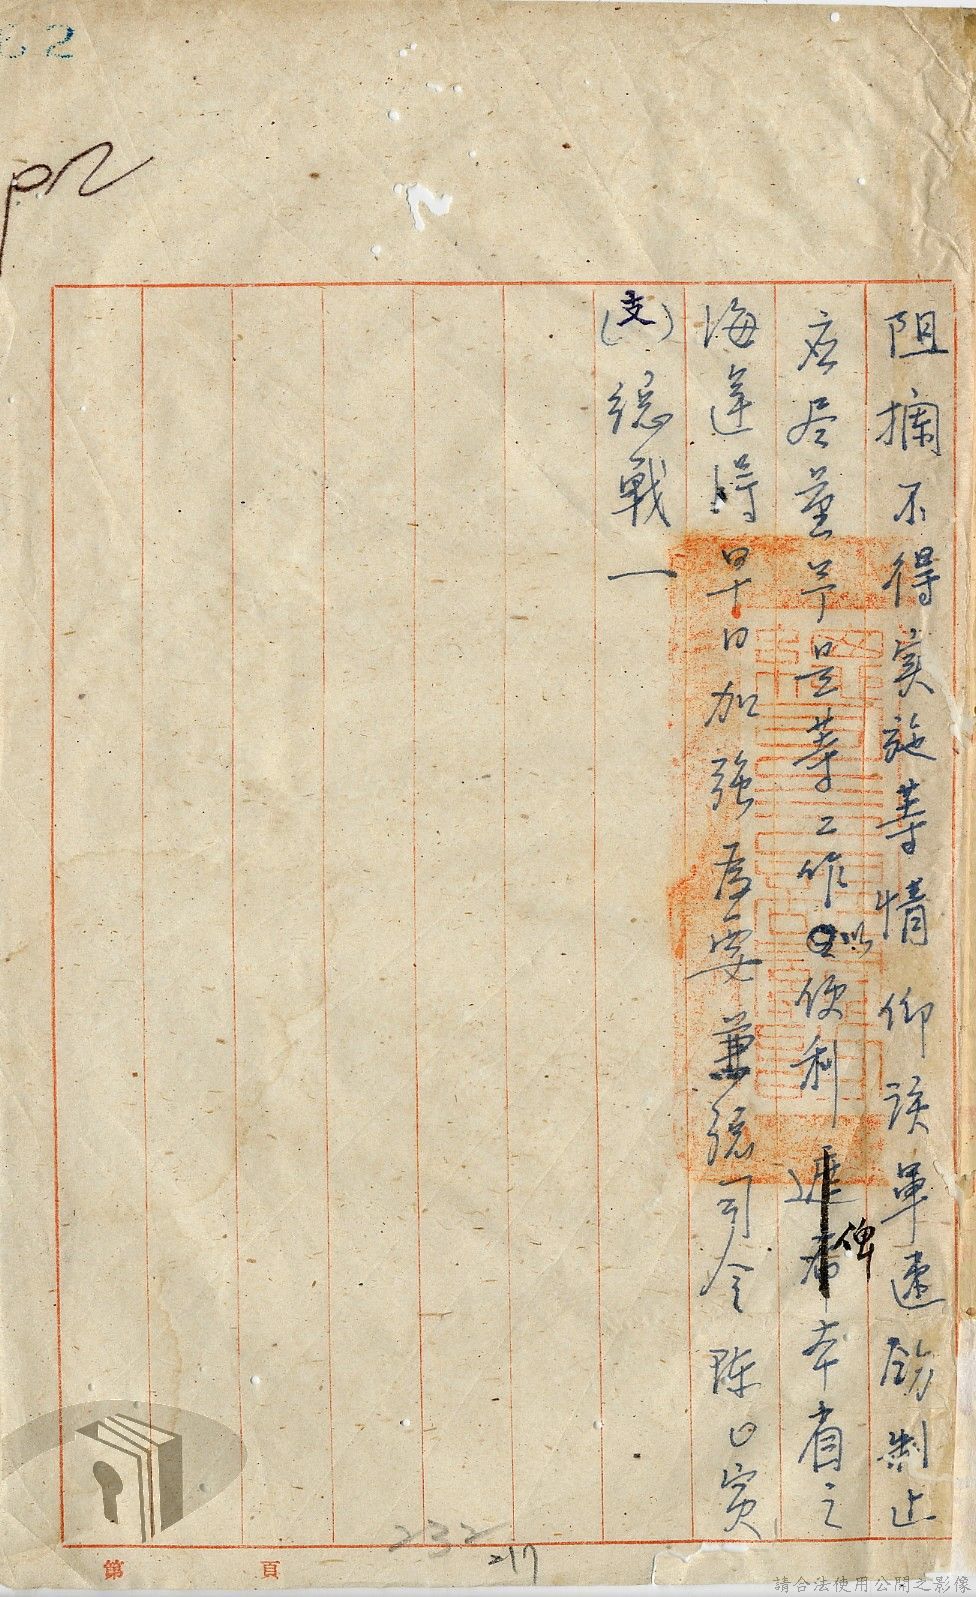 62
阻攔不得實施等情仰該軍速飭制止
应尽量予是等工作以便利俾本省之
海運得早日加強為要兼總司令陳〇寅
（支）總戰一
第 頁
232
217
請合法使用公開之影像